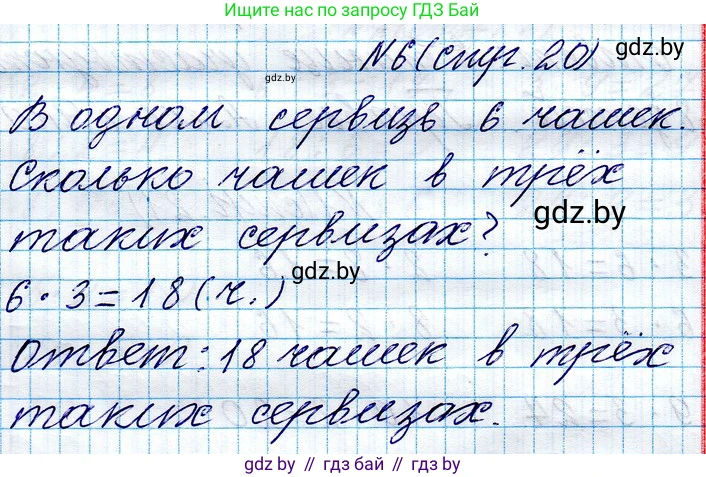 Ищите нас по запросу ГДЗ Бай
N6 (стр. 20) gdz.by
gdz.by
В одном сервизе 6 чашек.
Сколько чашек в трёх
gdz.by
таких сервизах?
gdz.by
6 · 3 = 18 (ч.)
Ответ: 18 чашек в трёх
таких сервизах.
gdz.by // гдз бай // gdz.by